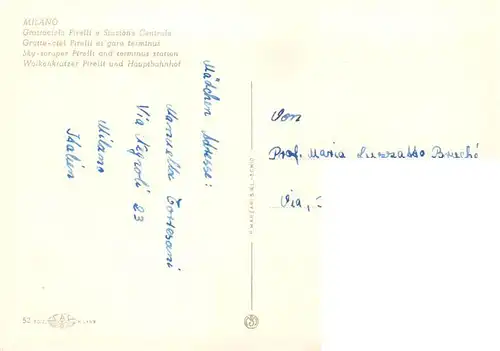 MILANO
Grattacielo Pirelli e Stazione Centrale
Gratte-ciel Pirelli et gare terminus
Sky-scraper Pirelli and terminus station
Wolkenkratzer Pirelli und Hauptbahnhof
Mädchen Adresse:
Manuella Tortesani
Via Vignoli 23
Milano
Italien
Von
Prof. Maria
Via,
52